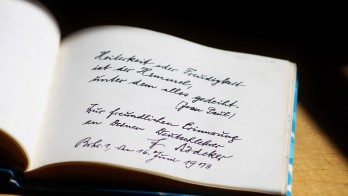 Heiterkeit oder Freudigkeit
ist der Himmel,
unter dem alles gedeiht.
(Jean Paul)
Zur freundlichen Erinnerung
an Deinen Deutschlehrer
F. Rädecker
den 16. Juni 1973